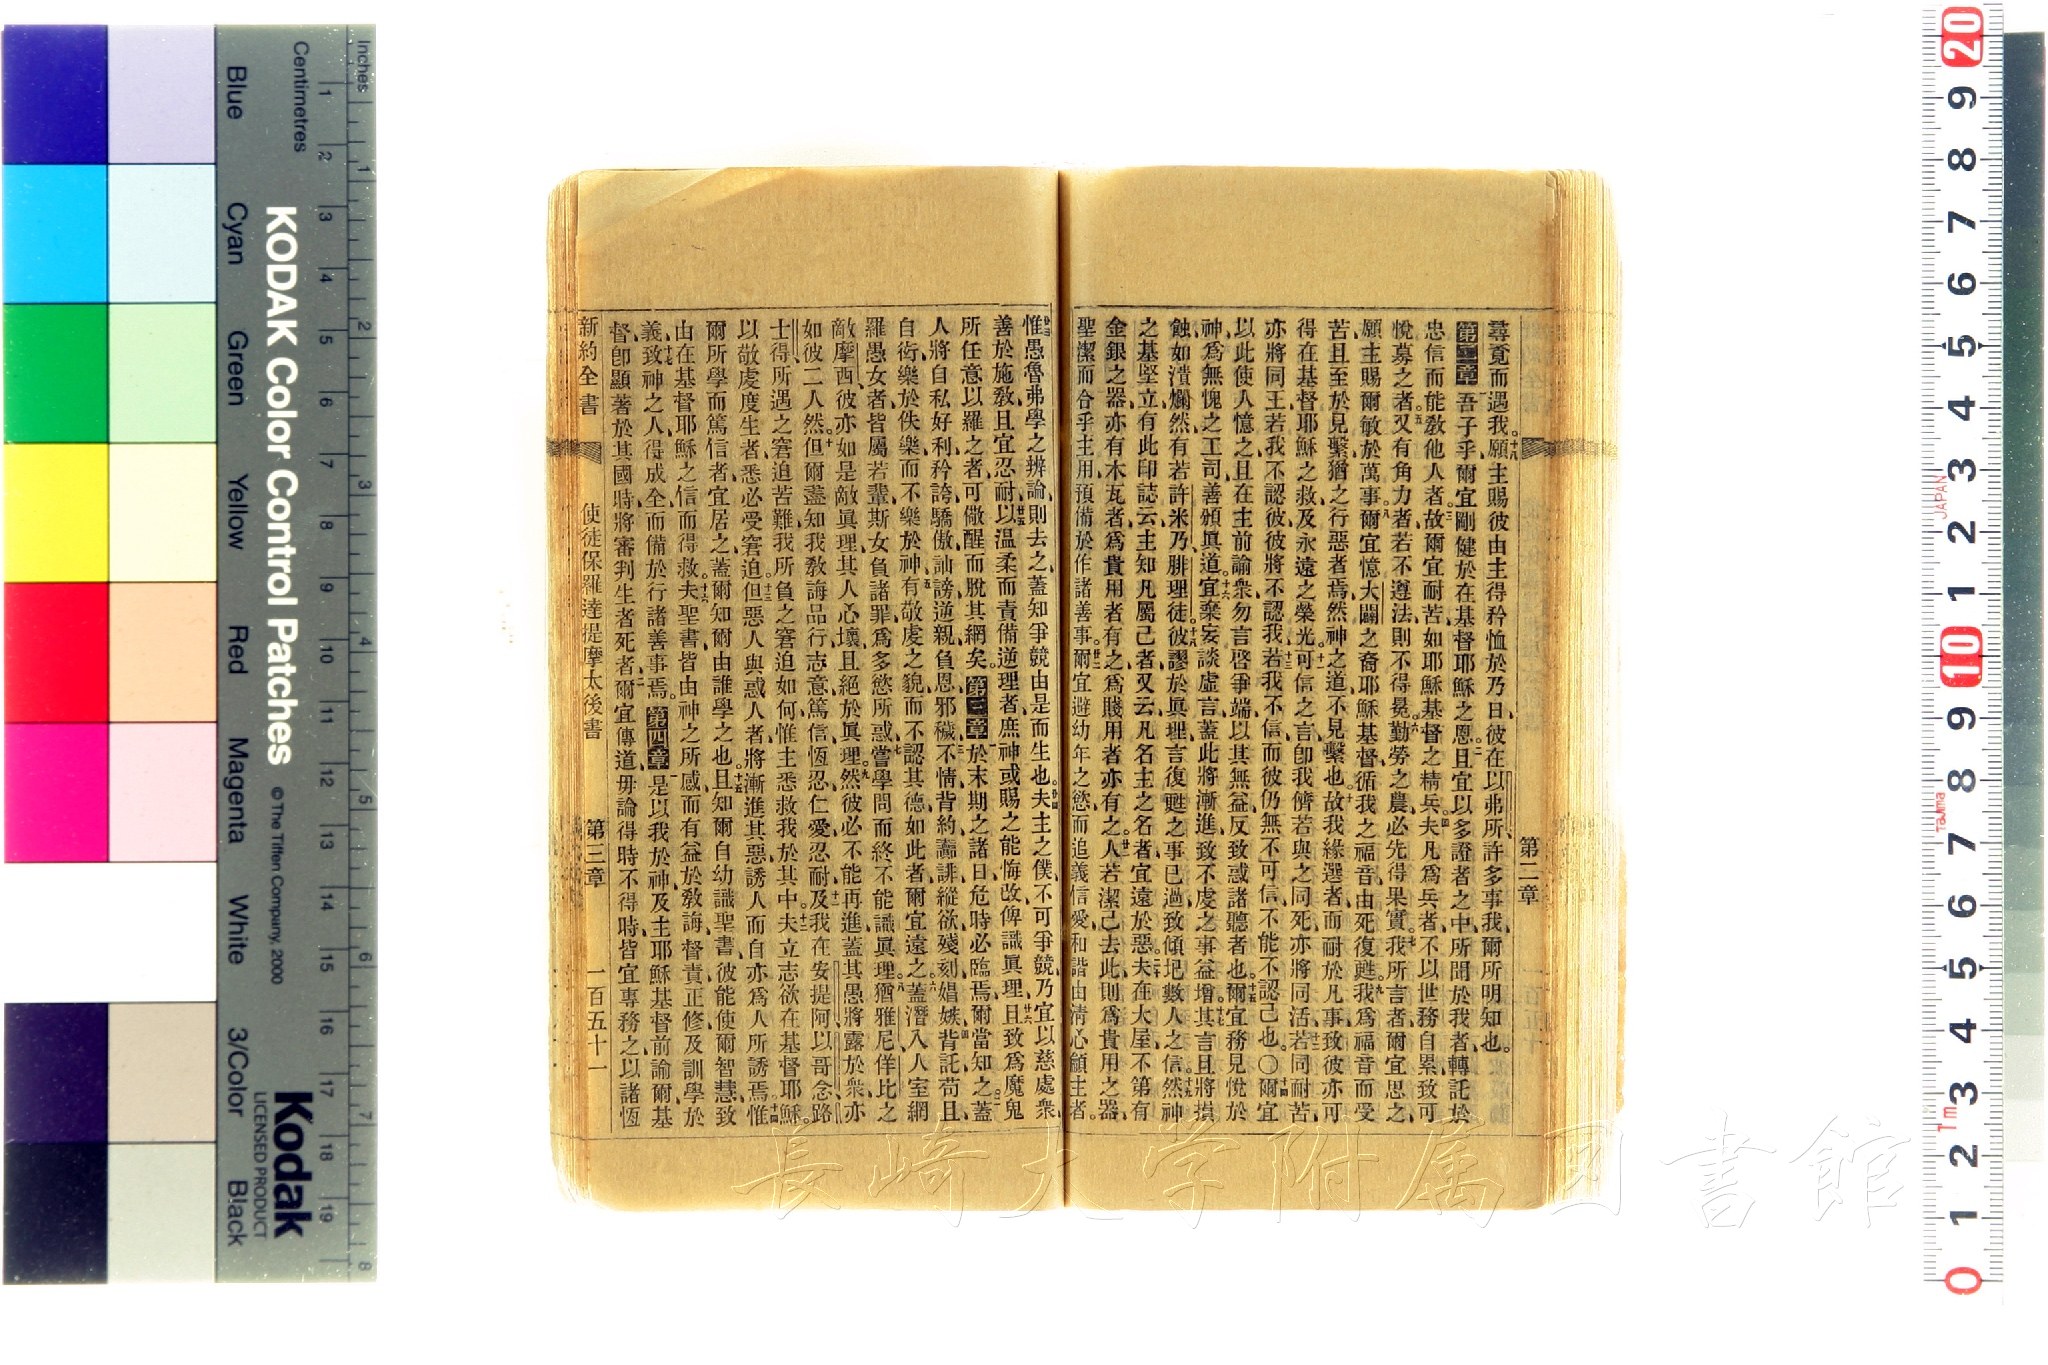 尋覓而遇我、十八願主賜彼由主得矜恤於乃日彼在以弗所許多事我、爾所明知也。
第二章 一吾子乎爾宜剛健於在基督耶穌之恩、二且宜以多證者之中所聞於我者、轉託於
忠信而能教他人者、三故爾宜耐苦如耶穌基督之精兵、四夫凡爲兵者、不以世務自累、致可
悅募之者、五又有角力者、若不遵法則不得冕、六勤勞之農、必先得果實、七我所言者爾宜思之
願主賜爾敏於萬事、八爾宜憶大闢之裔耶穌基督、循我之福音由死復甦、九我爲福音而受
苦、且至於見繫、猶之行惡者焉、然神之道不見繫也、十故我緣選者而耐於凡事、致彼亦可
得在基督耶穌之救、及永遠之榮光、十一可信之言、卽我儕若與之同死、亦將同活、十二若同耐苦、
亦將同王、若我不認彼、彼將不認我、十三若我不信、而彼仍無不可信、不能不認己也、〇十四爾宜
以此使人憶之、且在主前諭衆、勿言啓爭端、以其無益、反致惑諸聽者也、十五爾宜務見悅於
神、爲無愧之工司、善頒眞道、十六宜棄妄談虛言、蓋此將漸進、致不虔之事益增、十七其言且將損
蝕如潰爛然、有若許米乃、腓理徒、十八彼謬於眞理、言復甦之事已過、致傾圮數人之信、十九然神
之基堅立、有此印誌云、主知凡屬己者、又云、凡名主之名者、宜遠於惡、二十夫在大屋、不第有
金銀之器、亦有木瓦者、爲貴用者有之、爲賤用者亦有之、廿一人若潔己去此、則爲貴用之器、
聖潔而合乎主用、預備於作諸善事、廿二爾宜避幼年之慾、而追義信愛和、諧由淸心籲主者、
第二章
廿三惟愚魯弗學之辨論、則去之、蓋知爭競由是而生也、廿四夫主之僕、不可爭競、乃宜以慈處衆、
善於施教、且宜忍耐、廿五以温柔而責備逆理者、庶神或賜之能悔改、俾識眞理、廿六且致爲魔鬼
所任意以羅之者、可儆醒而脫其網矣。第三章 一於末期之諸日、危時必臨焉、爾當知之、二蓋
人將自私、好利、矜誇、驕傲、訕謗、逆親、負恩、邪穢、三不情、背約、讒誹、縱欲、殘刻、娼嫉、四背託、苟且、
自衒、樂於佚樂、而不樂於神、五有敬虔之貌、而不認其德、如此者爾宜遠之、六蓋潛入人室、網
羅愚女者、皆屬若輩、斯女負諸罪、爲多慾所惑、七嘗學問而終不能識眞理、八猶雅尼佯比之
敵摩西、彼亦如是敵眞理、其人心壞、且絕於眞理、九然彼必不能再進、蓋其愚將露於衆、亦
如彼二人然、十但爾盡知我教誨、品行、志意、篤信、恆忍、仁愛、忍耐、十一及我在安提阿以哥念路
士得所遇之窘迫苦難、我所負之窘迫如何、惟主悉救我於其中、十二夫立志欲在基督耶穌、
以敬虔度生者、悉必受窘迫、十三但惡人與惑人者、將漸進其惡、誘人而自亦爲人所誘焉、十四惟
爾所學而篤信者、宜居之、蓋爾知爾由誰學之也、十五且知爾自幼識聖書、彼能使爾智慧、致
由在基督耶穌之信而得救、十六夫聖書皆由神之所感、而有益於教誨、督責、正修、及訓學於
義、十七致神之人得成全、而備於行諸善事焉。第四章 一是以我於神、及主耶穌基督前諭爾、基
督、卽顯著於其國時、將審判生者死者、二爾宜傳道、毋論得時不得時、皆宜專務之、以諸恆
新約全書 使徒保羅達提摩太後書 第三章 一百五十一
長崎大学附属図書館
Inches
Centimetres
Blue Cyan Green Yellow Red Magenta White 3/Color Black
KODAK Color Control Patches © The Tiffen Company, 2000
Kodak
LICENSED PRODUCT
1 2 3 4 5 6 7 8 9 10 11 12 13 14 15 16 17 18 19
1 2 3 4 5 6 7 8
20 9 8 7 6 5 4 3 2 1 10 9 8 7 6 5 4 3 2 1 0
JAPAN
Tajima
Tm